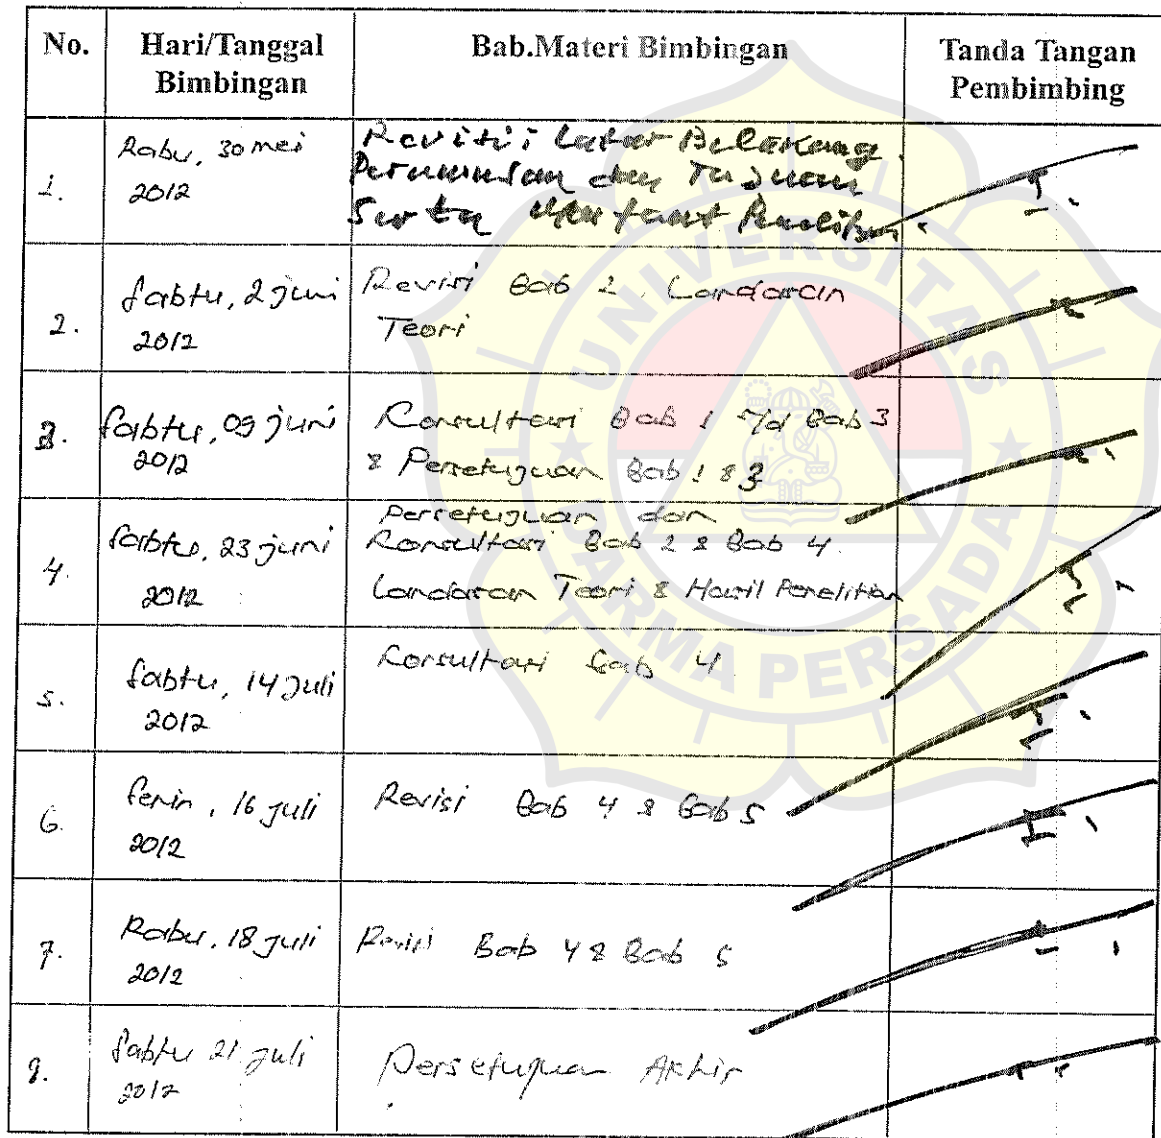 No.
Hari/Tanggal
Bimbingan
Bab.Materi Bimbingan
Tanda Tangan
Pembimbing
1.
Rabu, 30 mei
2012
Revisi: Latar Belakang.
Perumusan dan Tujuan
Serta Manfaat Penelitian.
2.
Sabtu, 2 juni
2012
Revisi Bab 2. Landasan
Teori
3.
Sabtu, 09 juni
2012
Konsultasi Bab 1 s/d Bab 3
& Persetujuan Bab 1 & 3
4.
Sabtu, 23 juni
2012
Persetujuan dan
Konsultasi Bab 2 & Bab 4.
Landasan Teori & Hasil Penelitian
5.
Sabtu, 14 Juli
2012
Konsultasi Bab 4
6.
Senin, 16 juli
2012
Revisi Bab 4 & Bab 5
7.
Rabu, 18 juli
2012
Revisi Bab 4 & Bab 5
Sabtu 21 juli
2012
Persetujuan Akhir
UNIVERSITAS
DARMA PERSADA